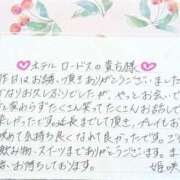 ホテル ロードスの貴方様
昨日はお誘い頂きありがとうございました
なりお久しぶりでしたが、やっとお会いで
と変わらずたくさん笑って たくさんお話して
楽しかったです。延長までして頂き、プレイもお
攻めて気持ち良くなれて良かったです。
飲み物・スイーツまでありがとうございます。ま
お待ちしております。 姫咲